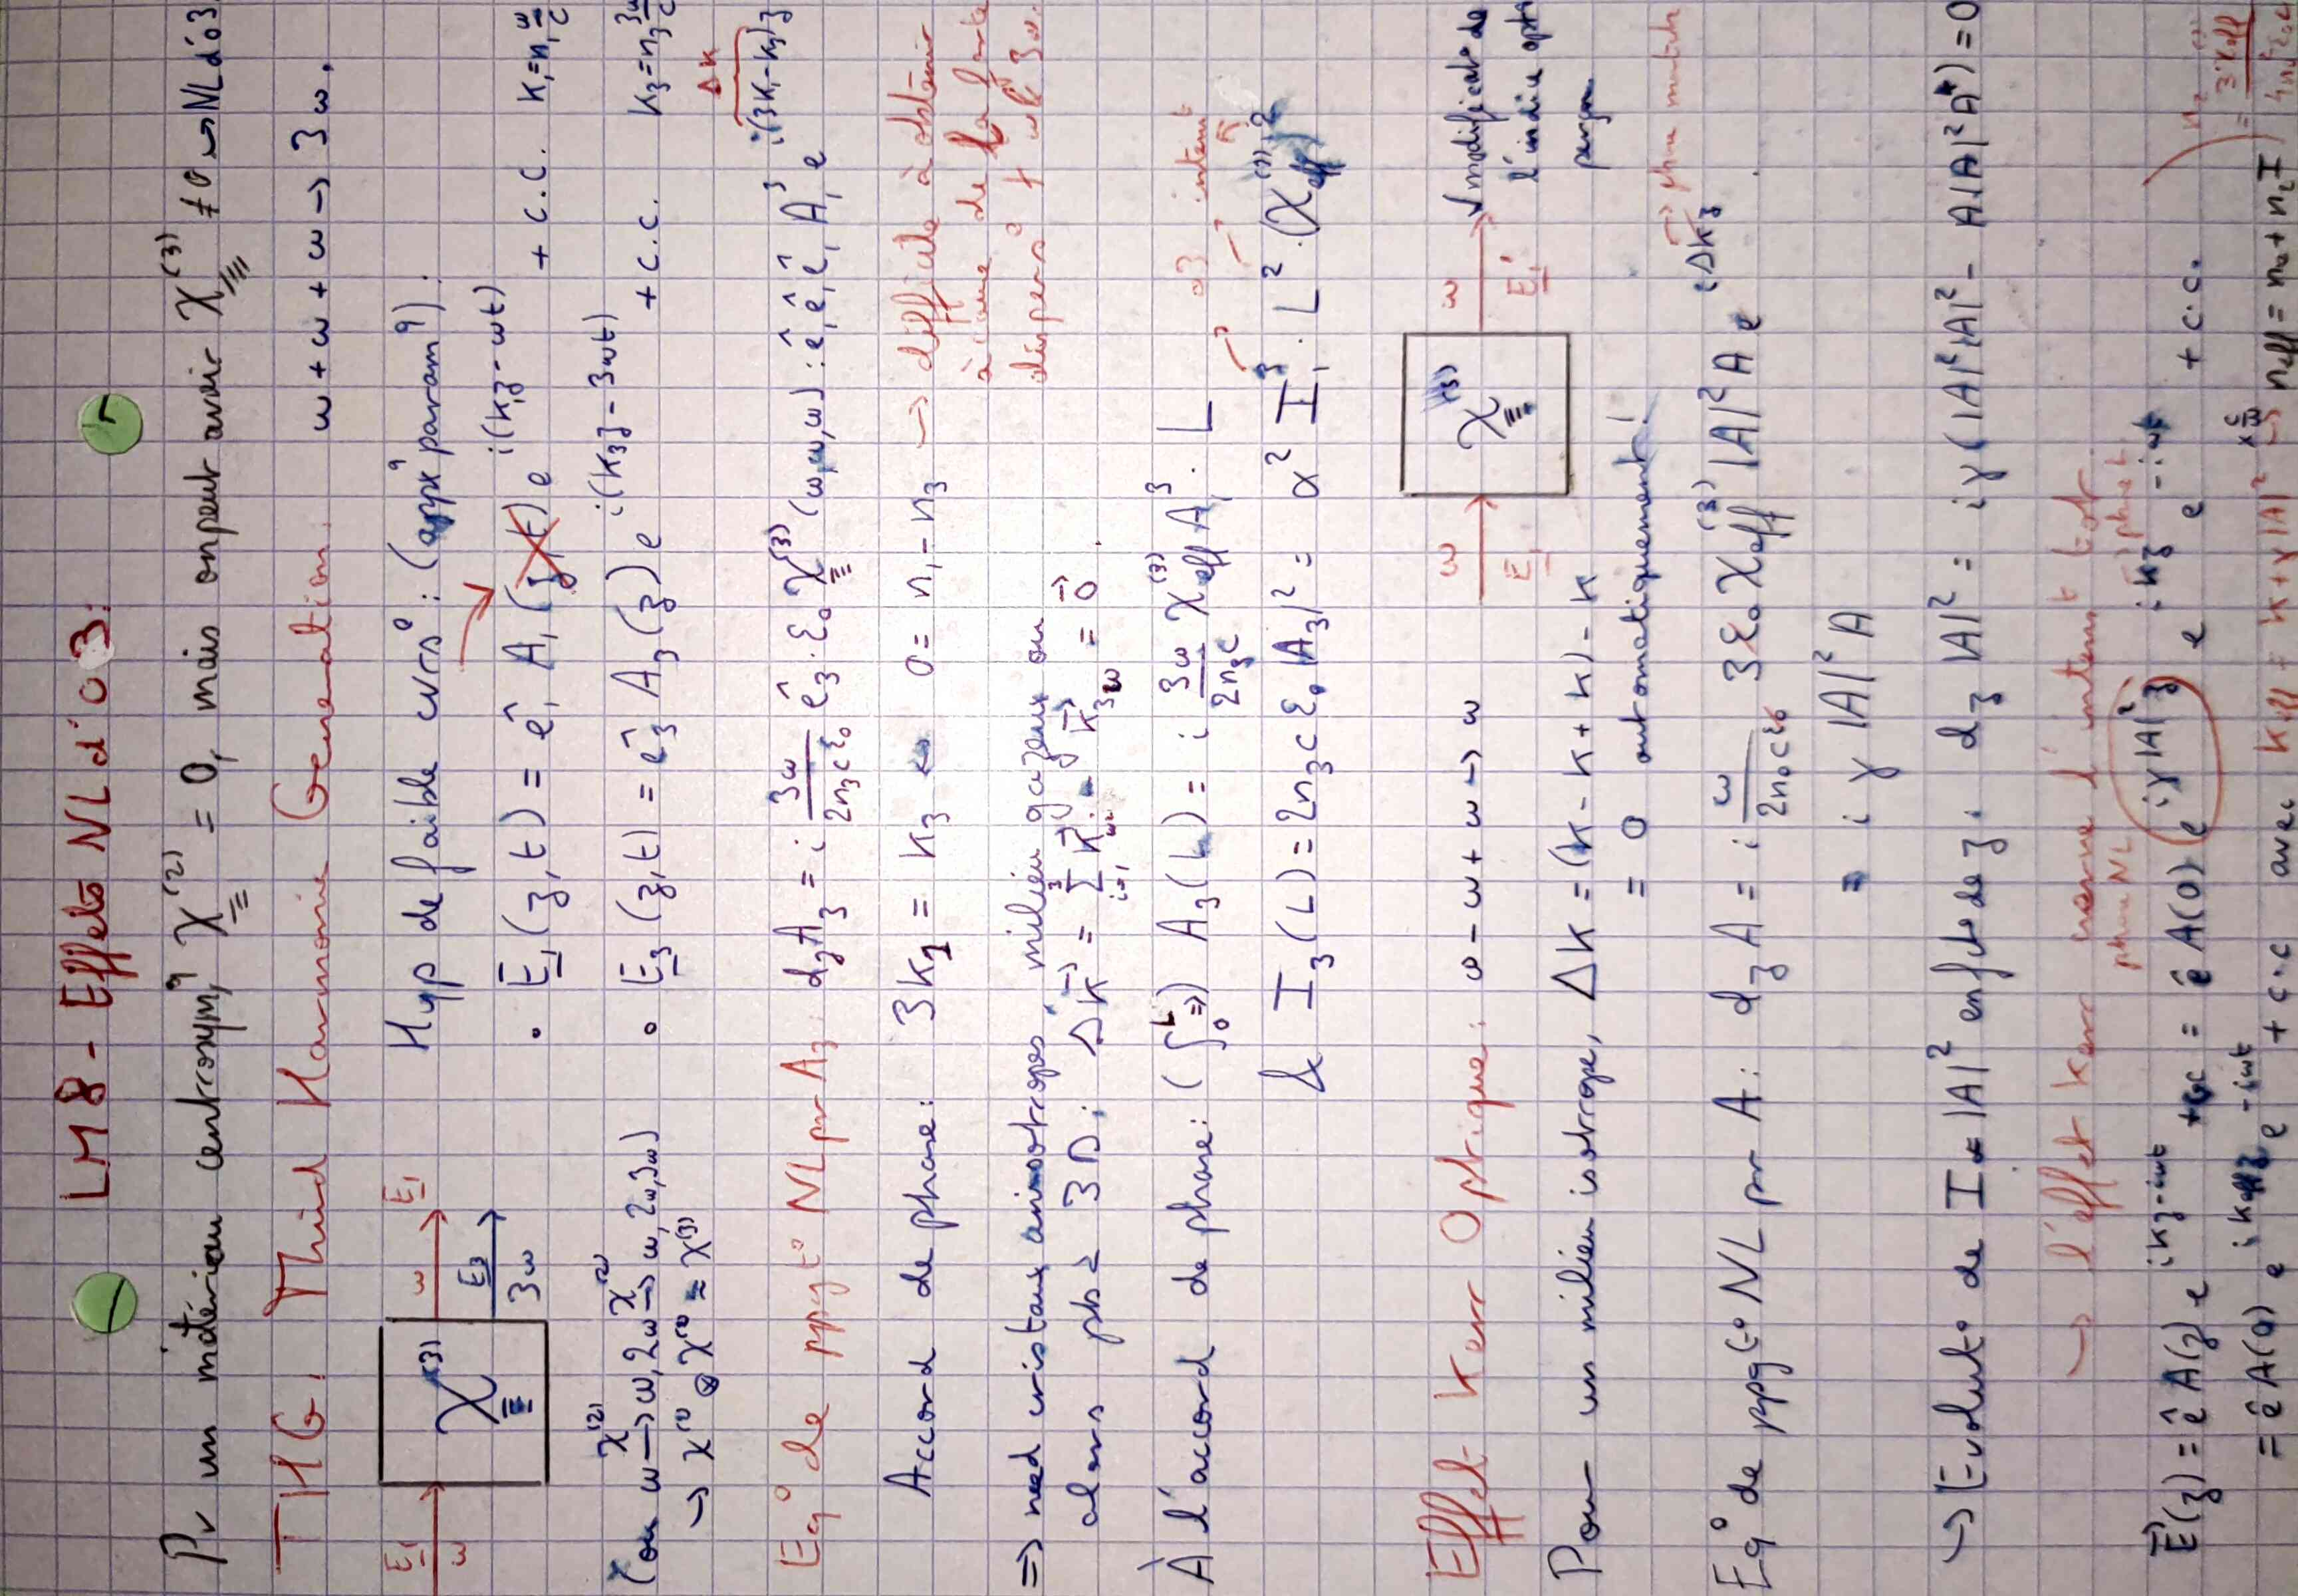 LM 8 - Effets NL d'o 3:
Pr un matériau centrosymq, χ^(2) = 0, mais on peut avoir χ^(3) ≠ 0 → NL d'o3
THG: Third Harmonic Generation. ω + ω + ω → 3ω.
E1 ω χ^(3) ω E1
E3 3ω
Hyp de faible cvrs°: (appxq paramq).
• E1(z,t) = ê1 A1(z,t) e^{i(k1z - ωt)} + c.c. k1 = n1 ω/c
• E3(z,t) = ê3 A3(z) e^{i(k3z - 3ωt)} + c.c. k3 = n3 3ω/c
(ou ω →χ^(2) ω, 2ω →χ^(2) ω, 2ω, 3ω)
→ χ^(2) ⊗ χ^(2) ≈ χ^(3)
Eq° de ppgt° NL pr A3: dz A3 = i 3ω/(2n3cε0) ê3 · ε0 χ^(3) (ω,ω,ω) : ê1 ê1 ê1 A1^3 e^{i(3k1-k3)z}
Δk
Accord de phase: 3k1 = k3 ⇔ 0 = n1 - n3 → difficile à obtenir
à cause de la forte
dispers° + ω & 3ω.
⇒ need cristaux anisotropes, milieu gazeux ou
alors pb 3D: Δk = Σ_{i=1}^{3} k_{ωi} - k_{3ω} = 0
À l'accord de phase: (∫_0^L ⇒) A3(L) = i 3ω/(2n3c) χeff^(3) A1^3 · L
o3 intens
& I3(L) = 2n3cε0 |A3|^2 = α^2 I1^3 · L^2 · (χeff^(3))^2
Effet Kerr Optique: ω - ω + ω → ω
ω E1 χ^(3) ω E1'
modificat° de
l'indice opt
par
Pour un milieu isotrope, Δk = (k - k + k) - k
= 0 automatiquement!
→ phase match
Eq° de ppgt° NL pr A: dz A = i ω/(2n0cε0) 3ε0 χeff^(3) |A|^2 A e^{iΔkz}
= i γ |A|^2 A
→ Evolut° de I ∝ |A|^2 en fct de z: dz |A|^2 = iγ(|A|^2|A|^2 - A*|A|^2A*) = 0
→ l'effet Kerr conserve l'intens tot
phase NL
E(z) = ê A(z) e^{ikz-iωt} + cc = ê A(0) (e^{iγ|A|^2z}) e^{ikz} e^{-iωt} + c.c.
= ê A(0) e^{i keff z} e^{-iωt} + c.c avec keff = k + γ|A|^2 ×c/ω → neff = n0 + n2 I
n2 = 3χeff^(3)